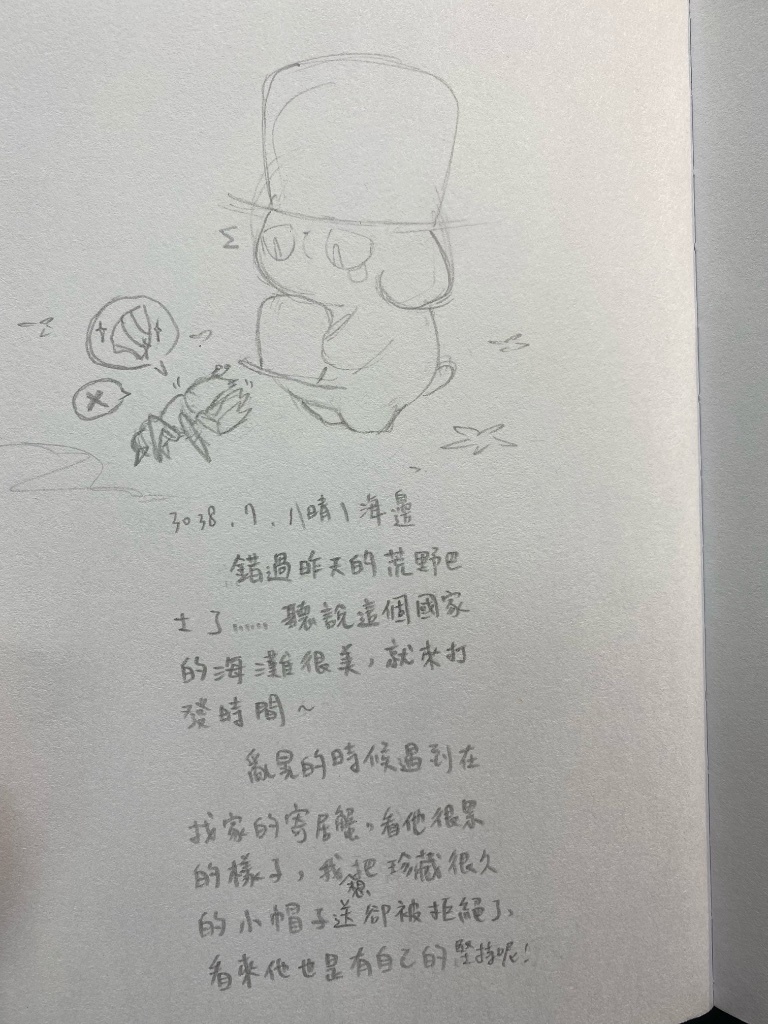 3038.7.八晴\海邊
錯過昨天的荒野巴
士了......聽說這個國家
的海灘很美,就來打
發時間~
亂晃的時候遇到在
找家的寄居蟹。看他很累
的樣子,我把珍藏很久
想
的小帽子送卻被拒絕了,
看來他也是有自己的堅持呢!